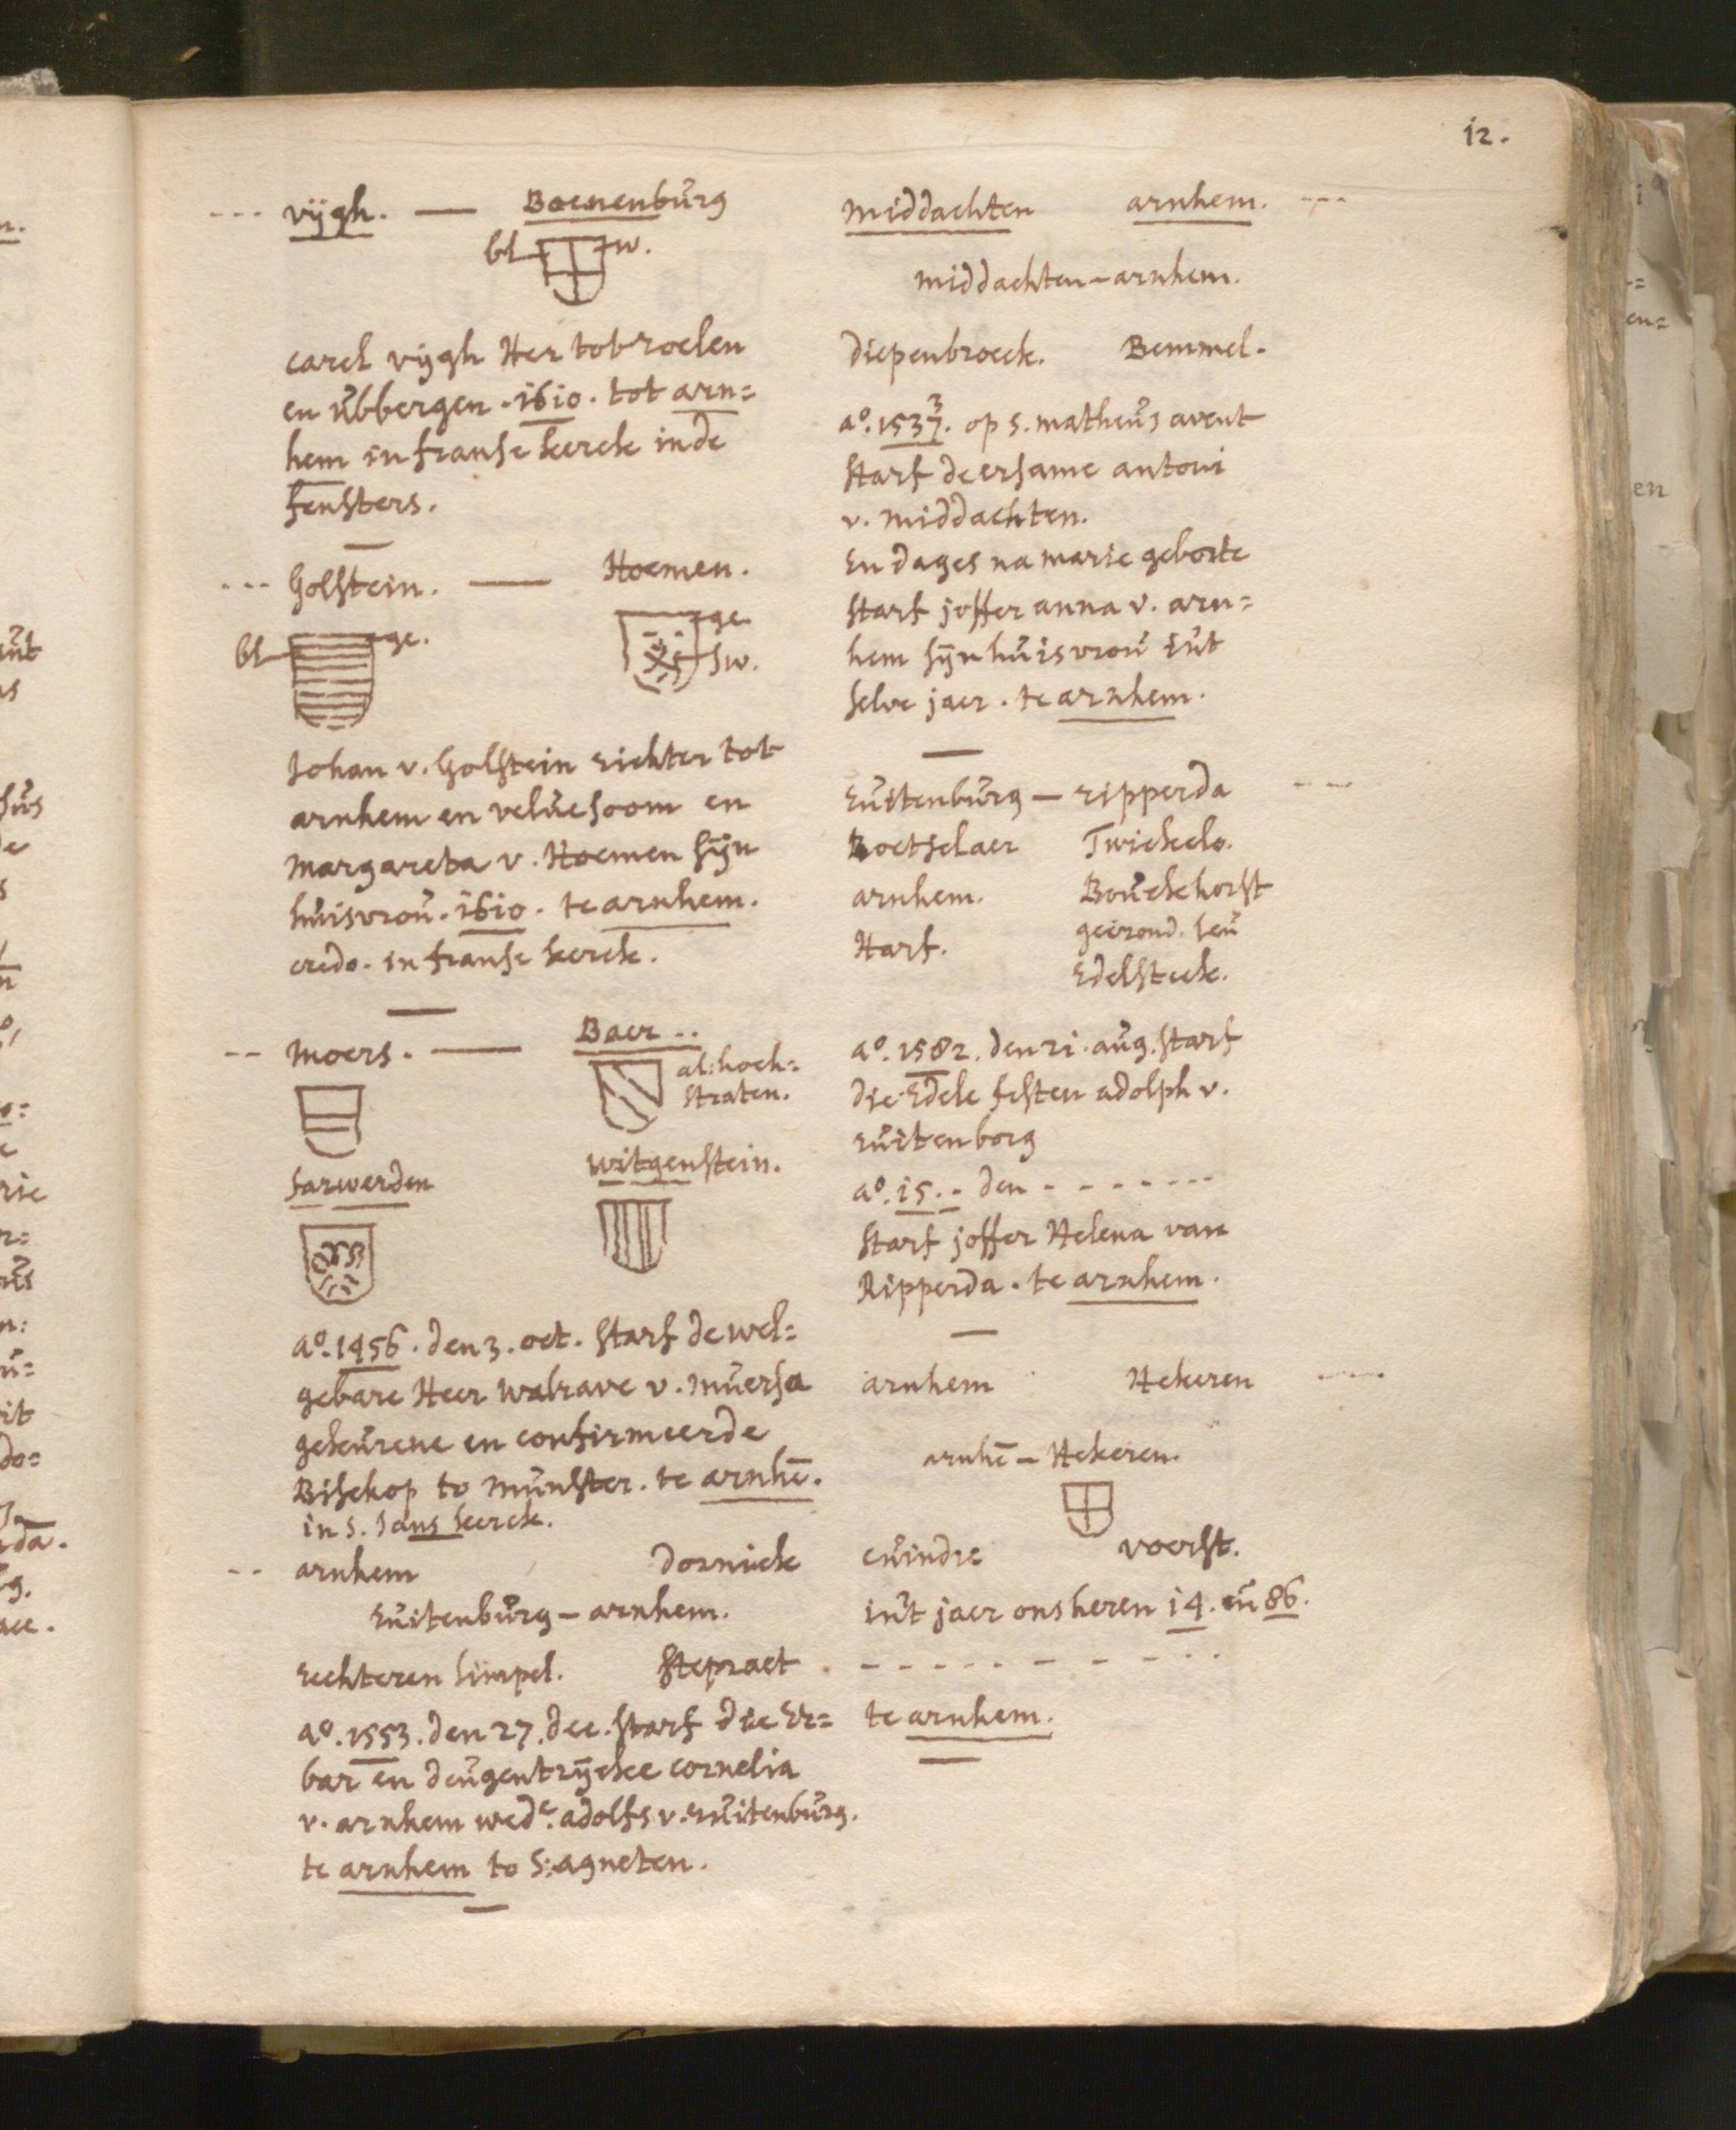 12.
--- vijgh. — Boenenburg
bl w.
carel vijgh Her totroelen
en ubbergen. 1610. tot arn=
hem in franse kerck inde
fensters.
--- Golstein. — Hoemen.
bl ge. ge
sw.
Johan v. Golstein richter tot
arnhem en veluesoom en
margareta v. Hoemen sijn
huisvrou. 1610. te arnhem.
credo. in franse kerck.
-- moers. — Baer ..
al: hoch=
straten.
sarwerden witgenstein.
ao. 1456. den 3. oct. starf de wel=
gebare Heer walrave v. muersa
gekeurene en confirmeerde
Bisckop to munster. te arnhē.
in s. Jans kerck.
-- arnhem Dornick
ruitenburg – arnhem.
rechteren simpel. stepraet.
ao. 1553. den 27. dec. starf die Er=
bar en deugentrijcke cornelia
v. arnhem wede. adolfs v. ruitenburg.
te arnhem to S: agneten.
middachten arnhem. ---
middachten – arnhem.
diepenbroeck. Bemmel.
3
ao. 1537. op s. matheus avent
starf de ersame antoni
v. middachten.
En dages na marie geborte
starf joffer anna v. arn=
hem sijn huisvrou int
selve jaer. te arnhem.
ruitenburg – ripperda ---
Boetselaer Twickelo.
arnhem. Bouckhorst
geirond. seu
Harf. Edelsteck.
ao. 1582. den 21. aug. starf
die Edele festen adolph v.
ruitenborg
ao. 15.. den - - - - - - -
starf joffer Helena van
Ripperda. te arnhem.
arnhem Hekeren ---
arnhē – Hekeren.
cuindre voorst.
int jaer ons heren 14. en 86.
- - - - - - - - - -
te arnhem.